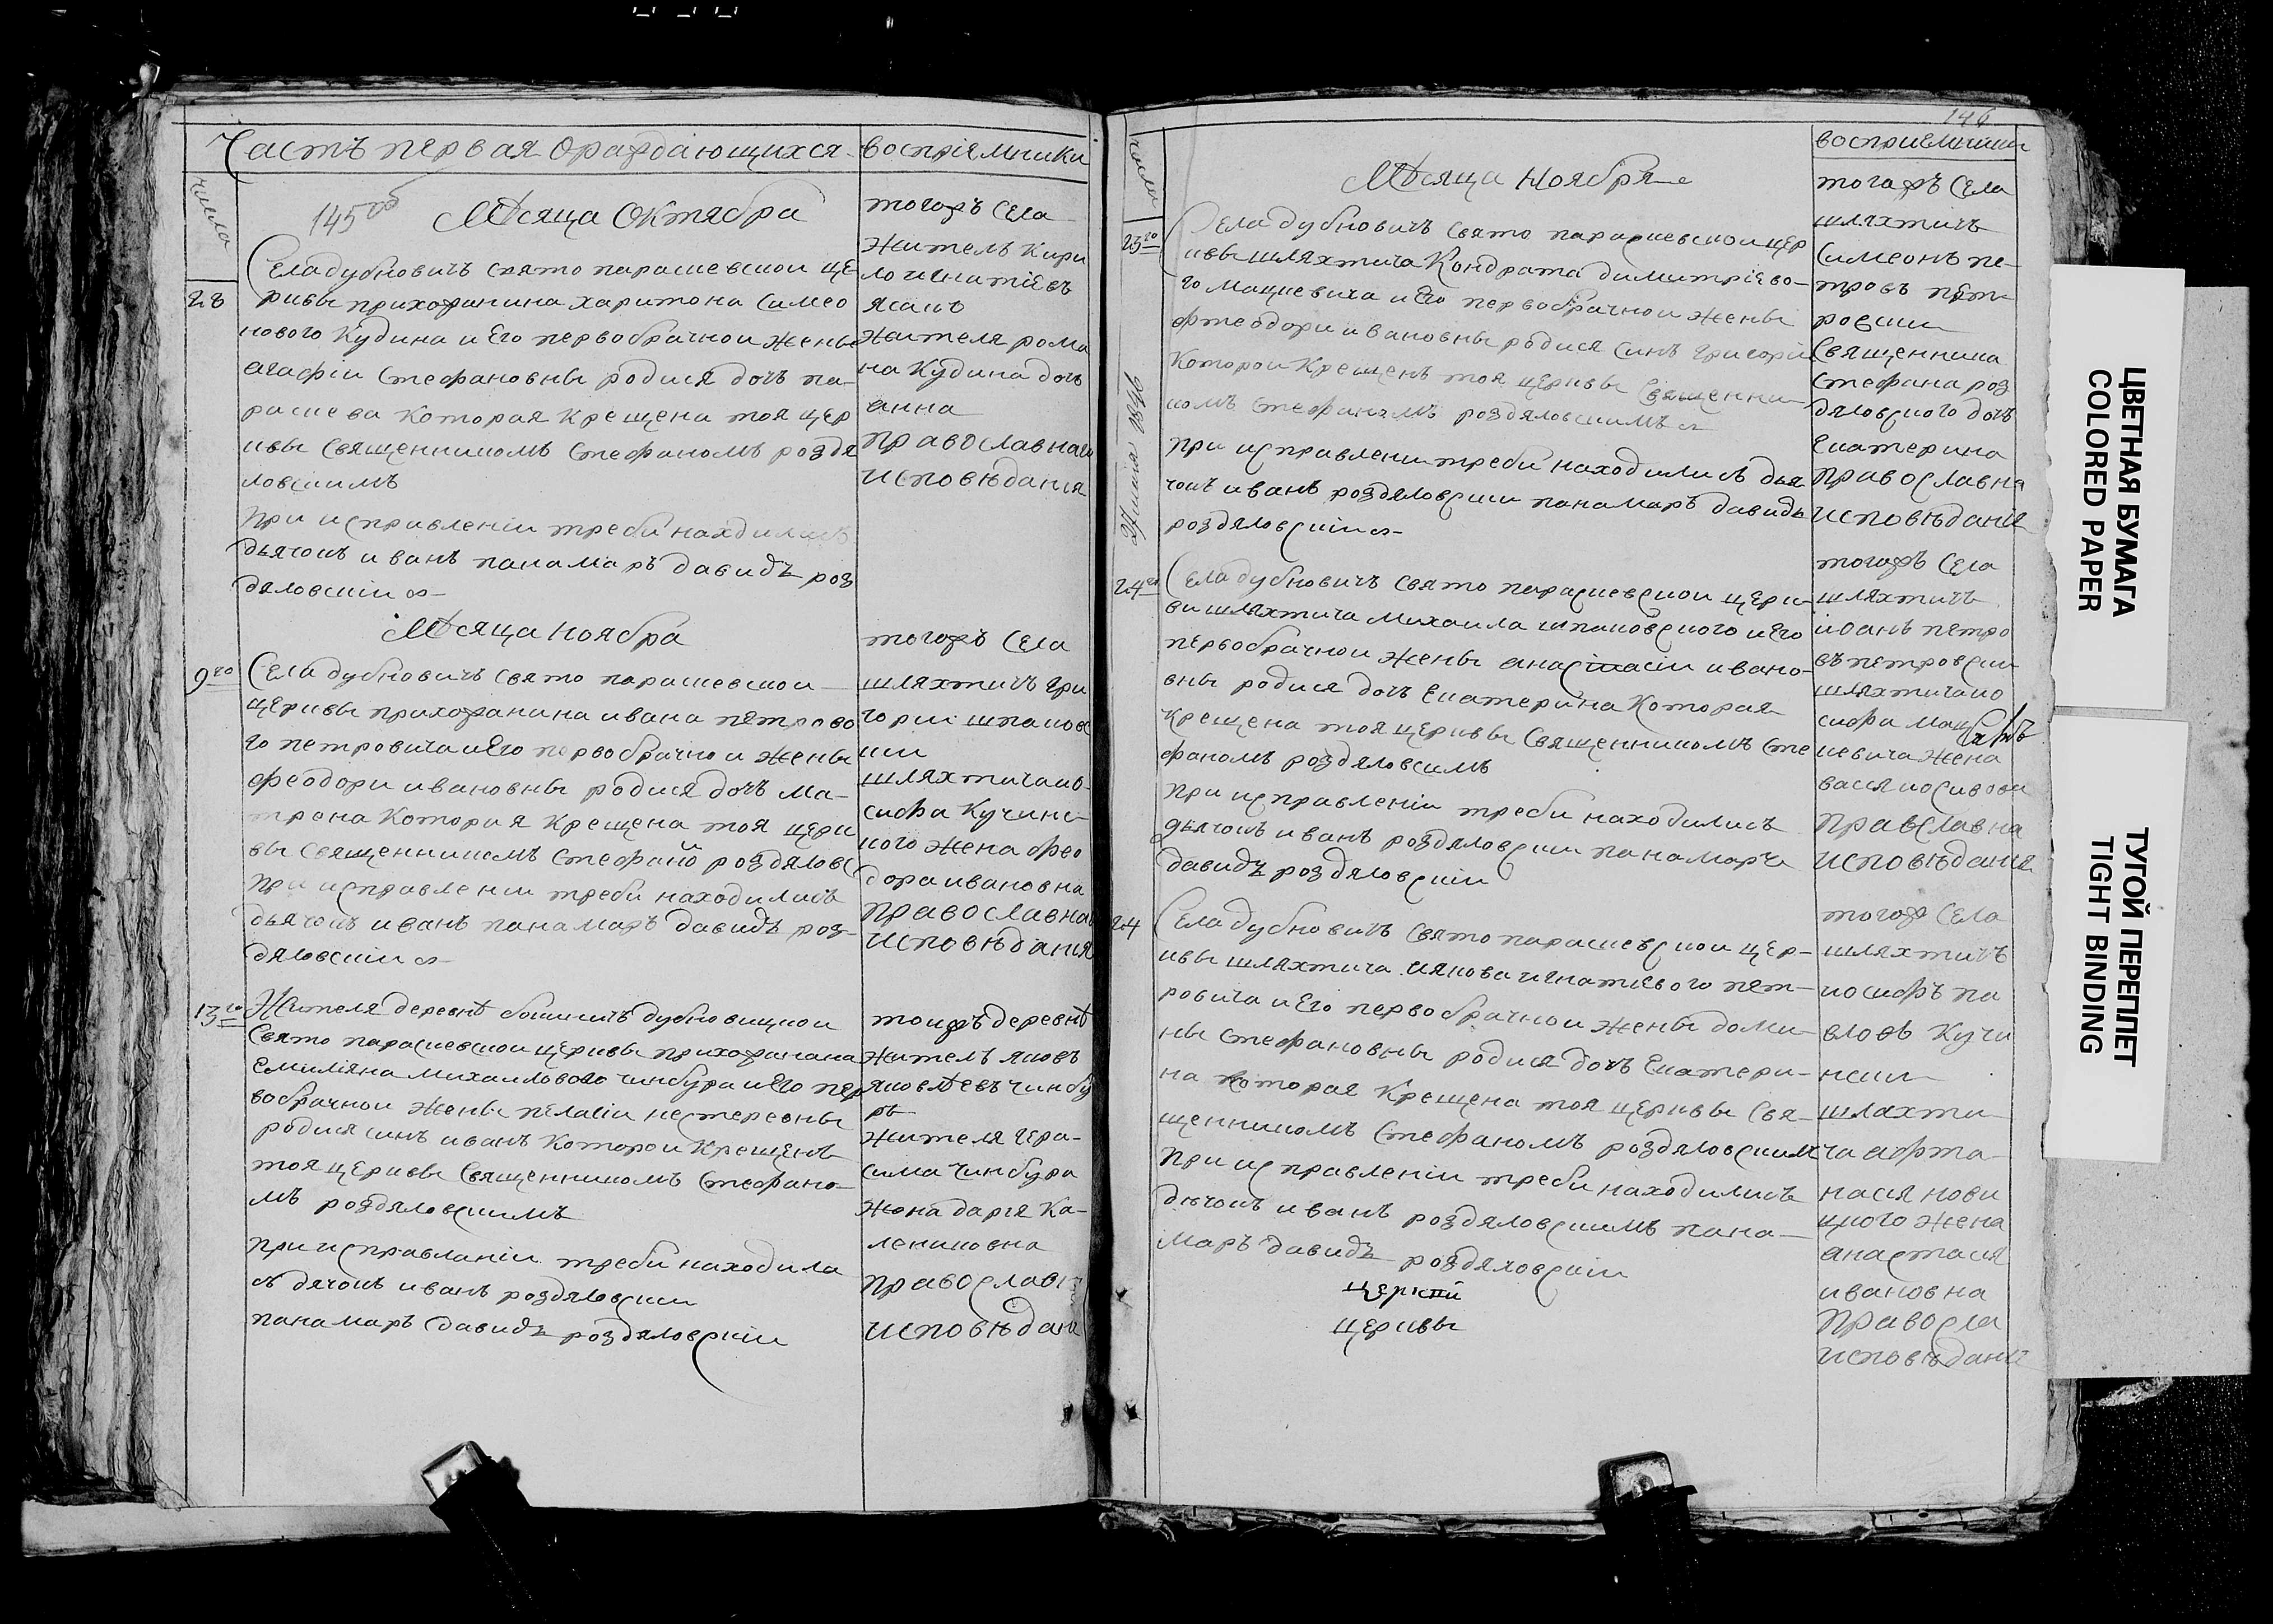 Часть первая Ораждающихся
восприемники
числа
145об
Мѣсяца Октября
28
Села дубновичъ свято парасиевскои це
рквы прихожанина харитона Симео
нового Кудина и Его первобрачнои жены
агафіи Стефановны родися дочь па-
расиева Которая Крещена тоя цер
квы Священникомъ Стефаномъ роздя
ловскимъ
При исправленіи треби находились
дьячокъ иванъ панамаръ давидъ роз
дяловскіи
тогожъ Села
житель Кири
ло игнатіевъ
жителя рома
на Кудина дочь
анна
православнаго
исповѣданія
Мѣсяца ноября
9го
Села дубновичъ свято парасиевскои
церквы прихожанина ивана петрово
го петровича и Его первобрачнои жены
феодори ивановны родися дочь ма-
трена Которая Крещена тоя церк
вы Священникомъ Стефаной роздяловс
При исправленіи треби находились
дьячокъ иванъ панамаръ давидъ роз-
дяловскіи
тогожъ Села
шляхтичъ гри
горіи шпаковс
кіи
шляхтича ио
сифа Кучинс
кого жена фео
дора ивановна
православна
исповѣданія
13го
Жителя деревнѣ бокиничъ дубновицкои
Свято парасиевскои церквы прихожанана
Емиліяна михаиловово чинбура и Его пер
вобрачнои жены пелагіи нестеревны
родися синъ иванъ Которои Крещенъ
тоя церквы Священникомъ Стефано-
мъ роздяловскимъ
при исправланіи треби находила
съ дячокъ иванъ роздяловскии
панамаръ давидъ роздяловскіи
тоижъ деревнѣ
житель яковъ
яковлевъ чинбу
ръ
жителя гера-
сима чинбура
жона дария Ка-
лениковна
православн
исповѣдан
146
числа
восприемники
Мѣсяца Ноября
23го
Села дубновичъ свято парасиевскои цер
квы шляхтича Кондрата димитріево-
го мацкевича и Его первобрачнои жены
фтеодори ивановны родися синъ григорій
Которои Крещенъ тоя церквы Священни-
комъ Стефаномъ роздяловскимъ
при исправлении треби находились дья
чокъ иванъ роздяловскии панамаръ давидъ
роздяловскіи
тогожъ Села
шляхтичъ
Симеонъ пе-
тровъ пет
ровскии
Священника
Стефана роз
дяловского дочь
Екатерина
Православна
исповѣданія
24го
Села дубновичъ свято парасиевскои церк-
ви шляхтича михаила шпаковского и Его
первобрачнои жены анастасіи ивано-
вны родися дочь Екатерина Которая
Крещена тоя церквы Священникомъ Сте
фаномъ роздяловскимъ
при исправленіи треби находились
дьячокъ иванъ роздяловскии панамаръ
давидъ роздяловскіи
тогожъ Села
шляхтичъ
иванъ петро
въ петровскии
шляхтича ио
сифа мац
кевича жена
православна
исповѣданія
24
Села дубновичъ свято парасиевскои цер-
квы шляхтича иякова игнатиевого пет-
ровича и Его первобрачнои жены доми-
ны Стефановны родися дочь Екатери-
на которая Крещена тоя церквы Свя-
щенникомъ Стефаномъ роздяловским
При исправленіи треби находились
дьчокъ иванъ роздяловскимъ пана-
маръ давидъ роздяловскіи
церкви
церквы
тогож Села
шляхтичъ
иосифъ па
вловъ Кучи
нскии
шляхти
ча афта
насія нови
цкого жена
анастасия
ивановна
правосла
исповѣданія
ЦВЕТНАЯ БУМАГА
COLORED PAPER
ТУГОЙ ПЕРЕПЛЕТ
TIGHT BINDING